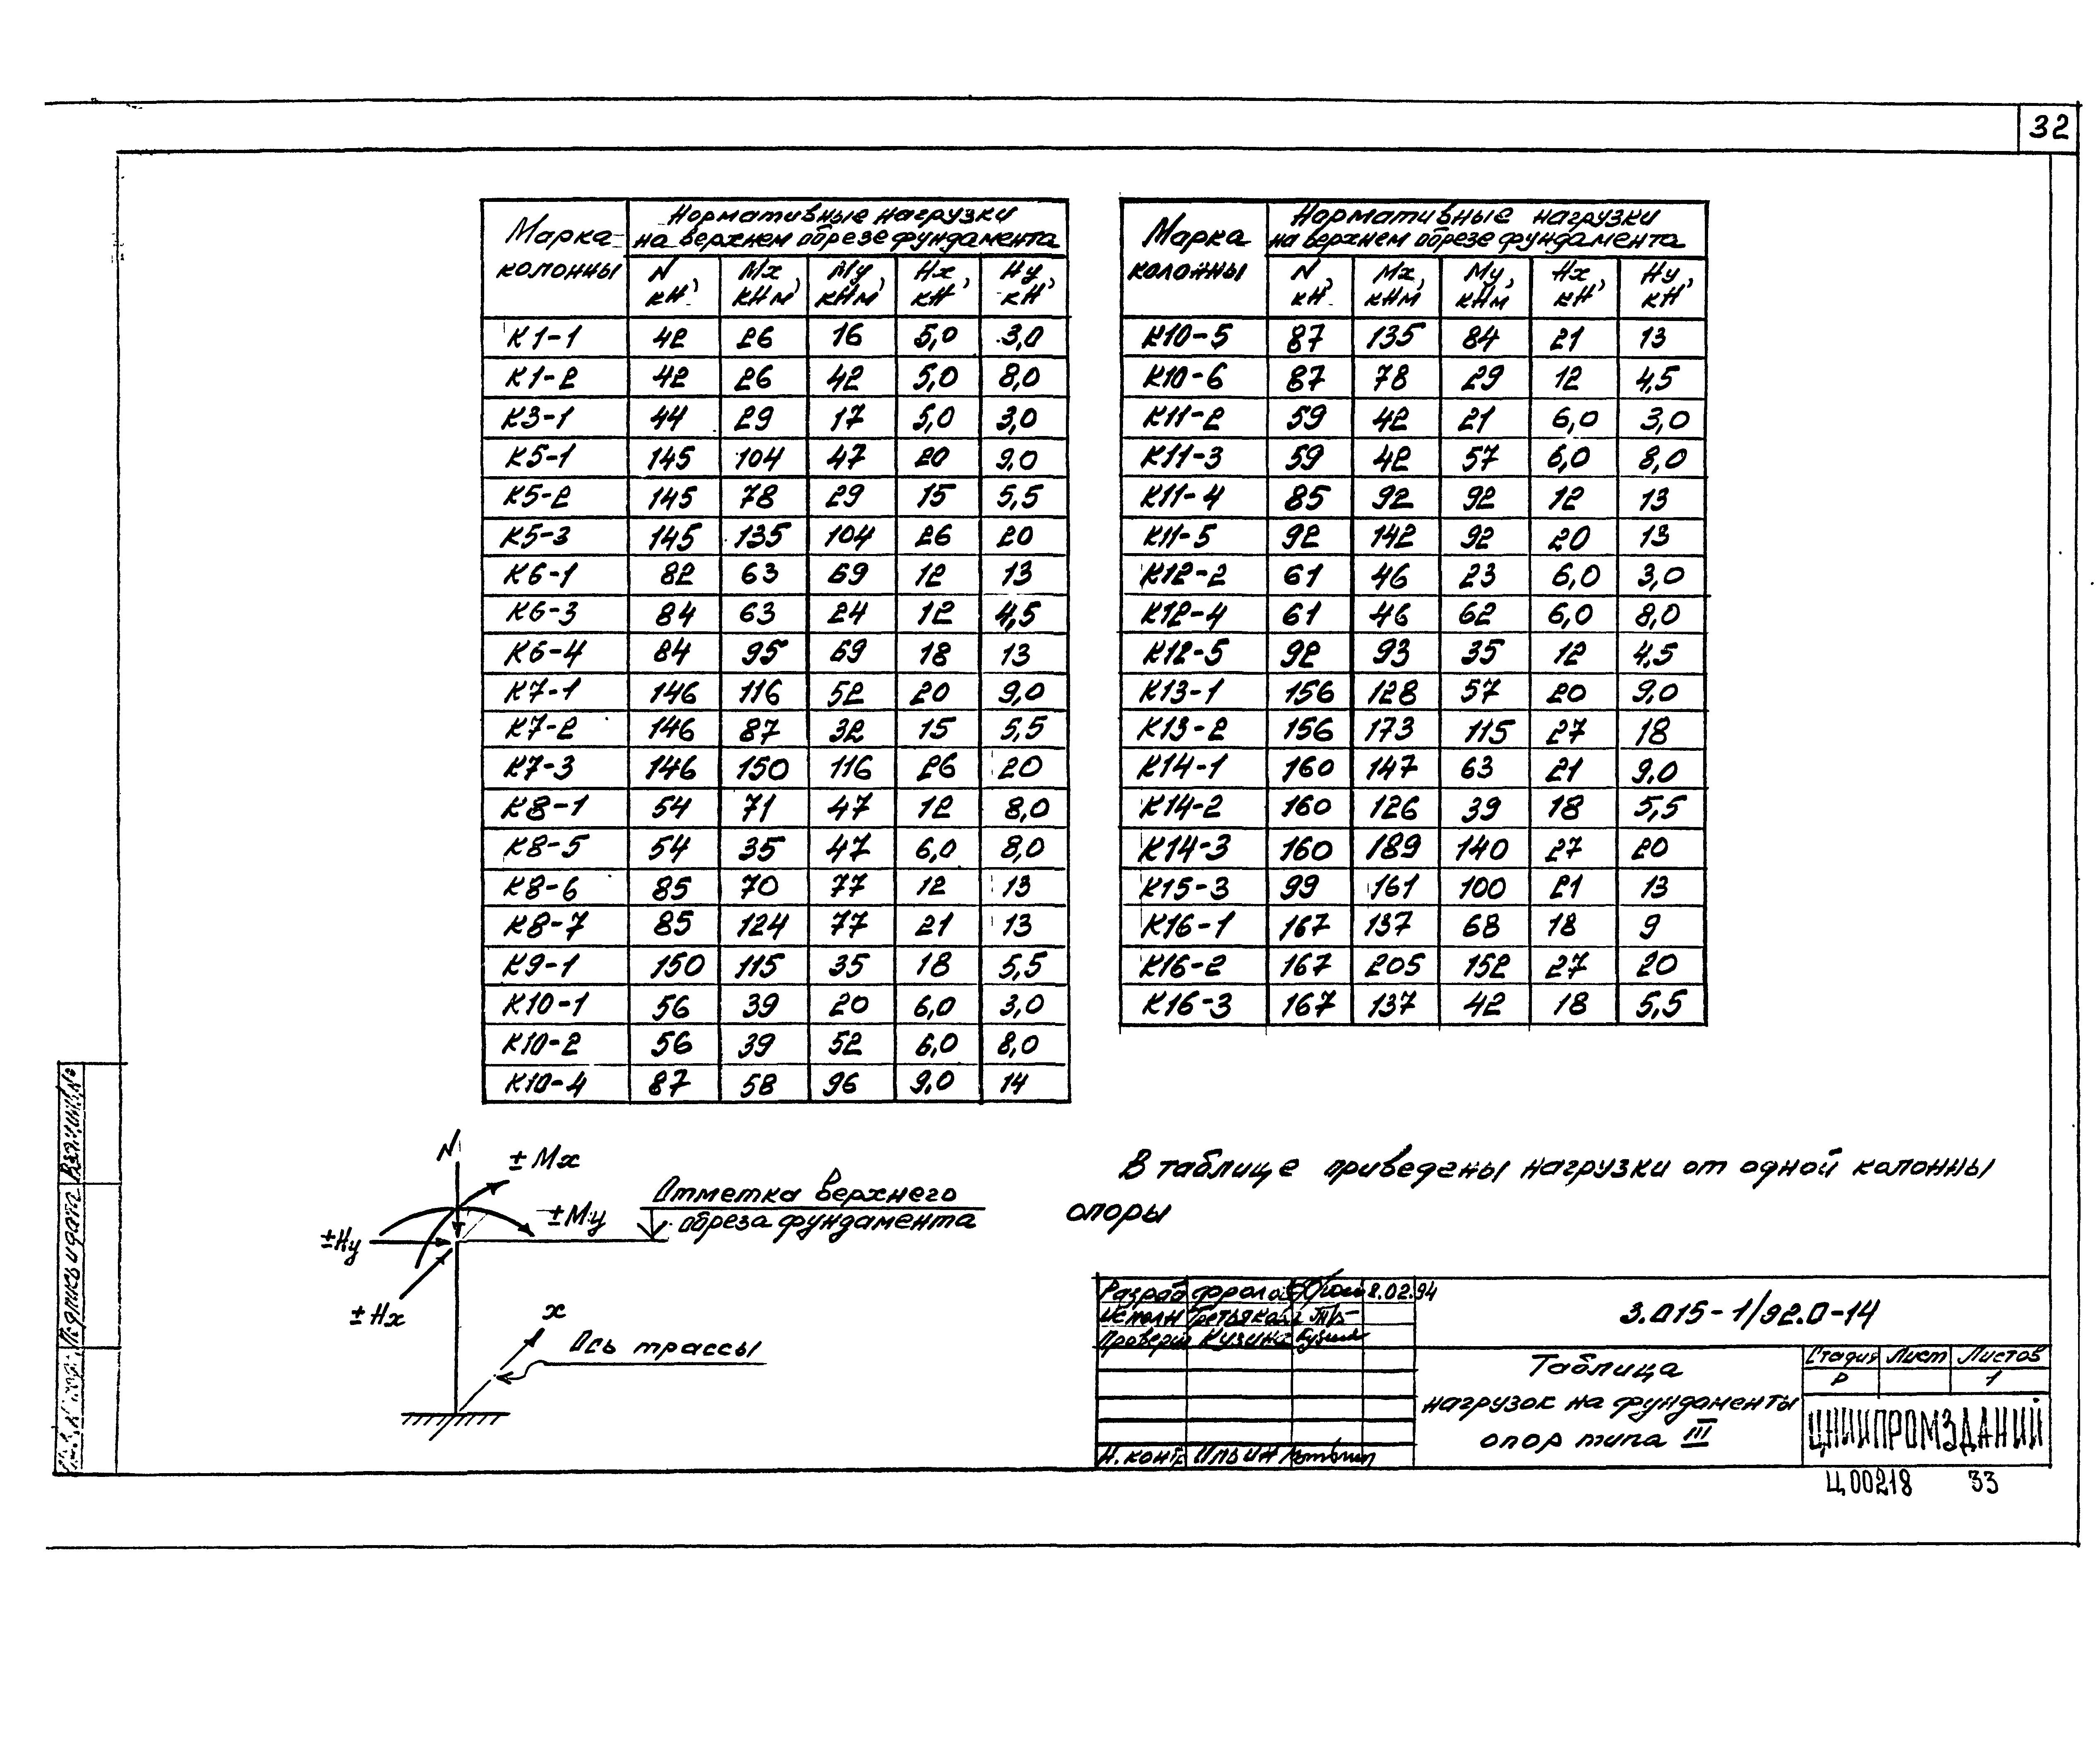 32
Марка колонны Нормативные нагрузки на верхнем обрезе фундамента
N, кН Mx, кНм My, кНм Hx, кН Hy, кН
К1-1 42 26 16 5,0 3,0
К1-2 42 26 42 5,0 8,0
К3-1 44 29 17 5,0 3,0
К5-1 145 104 47 20 9,0
К5-2 145 78 29 15 5,5
К5-3 145 135 104 26 20
К6-1 82 63 69 12 13
К6-3 84 63 24 12 4,5
К6-4 84 95 69 18 13
К7-1 146 116 52 20 9,0
К7-2 146 87 32 15 5,5
К7-3 146 150 116 26 20
К8-1 54 71 47 12 8,0
К8-5 54 35 47 6,0 8,0
К8-6 85 70 77 12 13
К8-7 85 124 77 21 13
К9-1 150 115 35 18 5,5
К10-1 56 39 20 6,0 3,0
К10-2 56 39 52 6,0 8,0
К10-4 87 58 96 9,0 14
Марка колонны Нормативные нагрузки на верхнем обрезе фундамента
N, кН Mx, кНм My, кНм Hx, кН Hy, кН
К10-5 87 135 84 21 13
К10-6 87 78 29 12 4,5
К11-2 59 42 21 6,0 3,0
К11-3 59 42 57 6,0 8,0
К11-4 85 92 92 12 13
К11-5 92 142 92 20 13
К12-2 61 46 23 6,0 3,0
К12-4 61 46 62 6,0 8,0
К12-5 92 93 35 12 4,5
К13-1 156 128 57 20 9,0
К13-2 156 173 115 27 18
К14-1 160 147 63 21 9,0
К14-2 160 126 39 18 5,5
К14-3 160 189 140 27 20
К15-3 99 161 100 21 13
К16-1 167 137 68 18 9
К16-2 167 205 152 27 20
К16-3 167 137 42 18 5,5
N
±Mx
±My
±Hy
±Hx
Отметка верхнего
обреза фундамента
x
Ось трассы
В таблице приведены нагрузки от одной колонны
опоры
Разраб 8.02.94
Исполн
Провери Кузина
Н. конт. Ильин
3.015-1/92.0-14
Таблица
нагрузок на фундаменты
опор типа III
Стадия Лист Листов
Р 1
ЦНИИПРОМЗДАНИЙ
Ц00218 33
Взам.инв.№
Подпись и дата